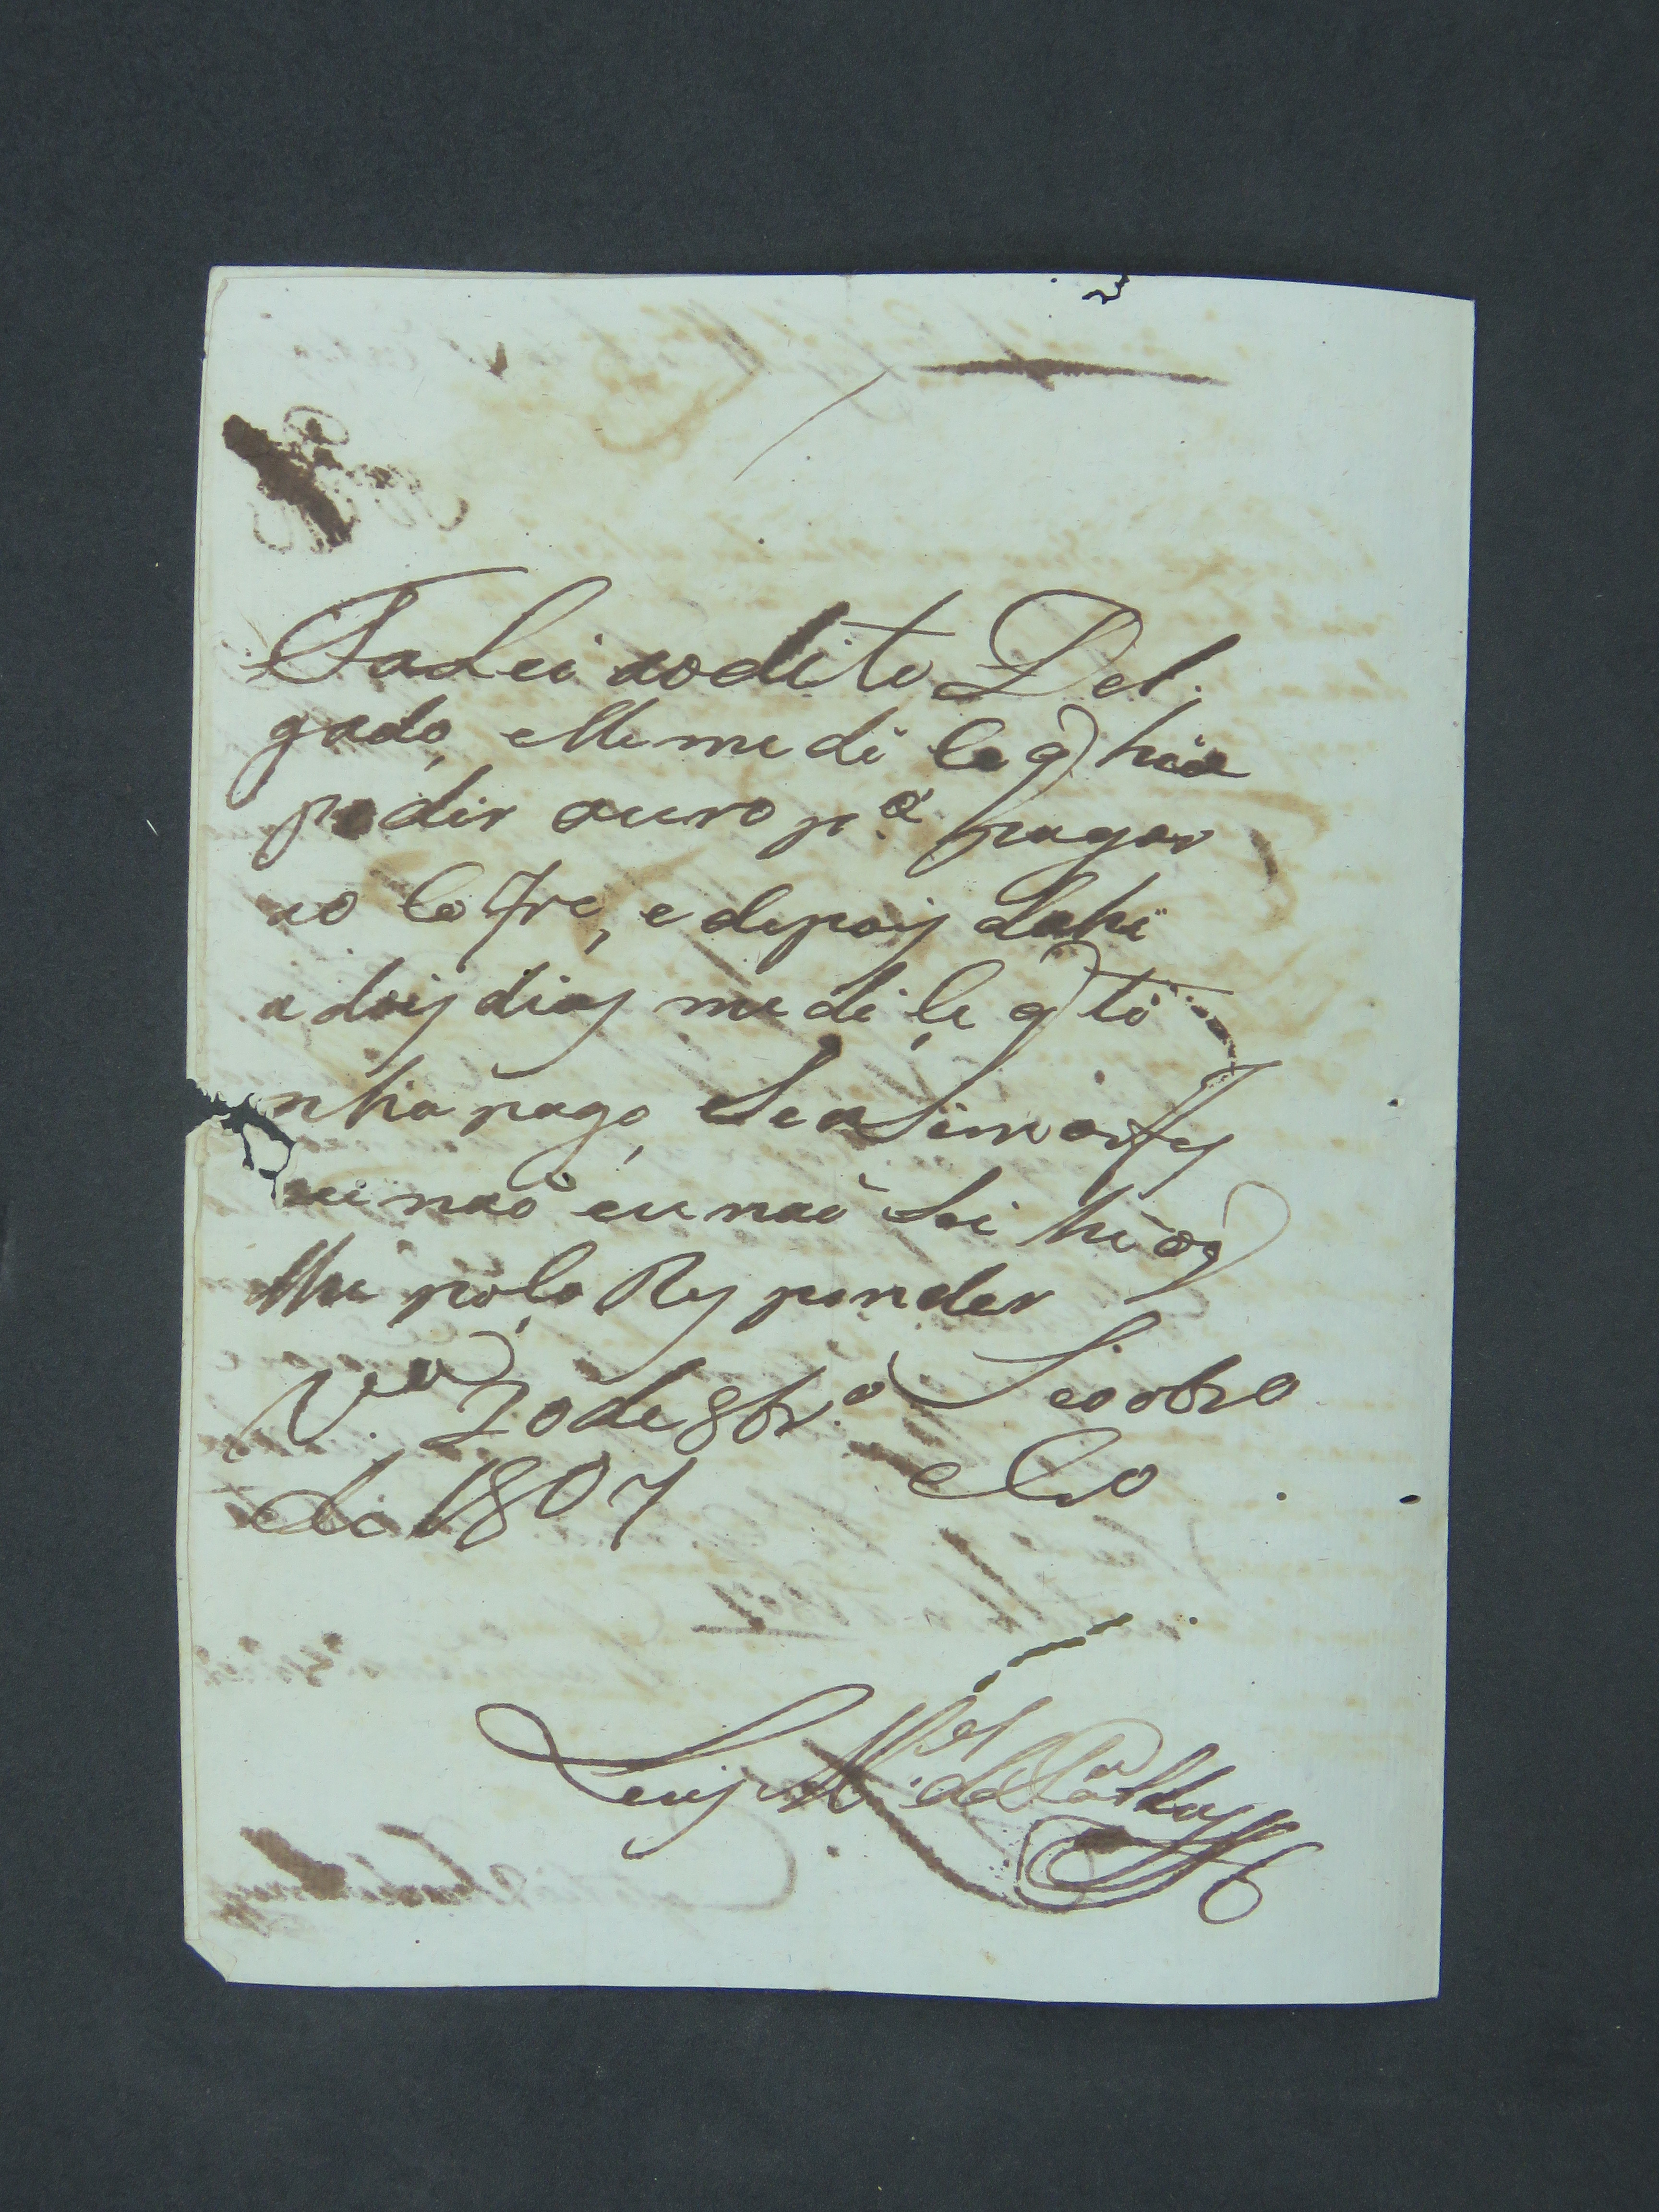 Falei ao dito Del
gado, elle me di ce q̃ hia
pedir ouro p.ª pagar
ao Cofre, e depois dahi
a dois dias me di ce q̃ ti
nha pago, Se asim o fes
ou naõ eu naõ Sei he o q̃
lhe poso Responder
20 de 8br.º
de 1807
Luis M.el de Caldas